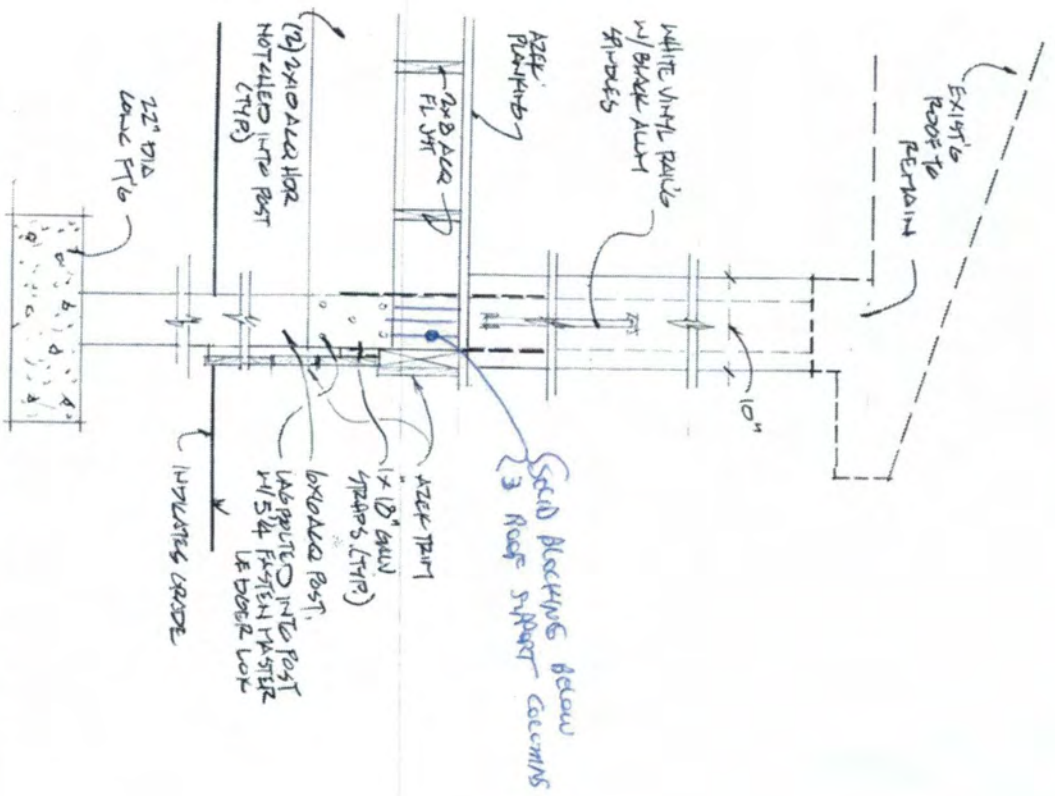 EXIST'G
ROOF TO
REMAIN
WHITE VINYL RAIL'G
W/ BLACK ALUM
SPINDLES
AZEK
PLANKING
2x8 ACQ
FL JST
(2) 2x10 ACQ HDR
NOTCHED INTO POST
(TYP.)
22" DIA
CONC FT'G
10"
SOLID BLOCKING BELOW
3 ROOF SUPPORT COLUMNS
AZEK TRIM
1 x 18" GALV
STRAPS. (TYP.)
6x6 ACQ POST.
LAG BOLTED INTO POST
W/ 5 1/4 FASTEN MASTER
LEDGER LOK
INDICATES GRADE